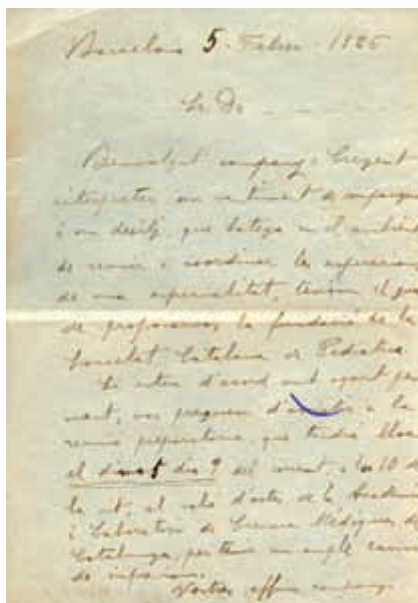 Barcelona 5 Febrer 1926
Sr. Dr.
Benvolgut company: Creyent
interpretar un sentiment de companye
i un desitj, que batega en el ambient
de reunir i coordinar les
de una especialitat, tenim el gus
de proposarvos la fundació de la
Societat Catalana de Pediatria.
Si esteu d'acord amb aquest pen
sament, vos preguem d'assistir a la
reunió preparatoria que tindrá lloc
el dia 9 del corrent a les 10 de
la nit, al saló d'actes de la Academia
i Laboratori de Ciencies Médiques de
Catalunya, per tenir un ample canvi
de impresions.
Vostres affms companys.